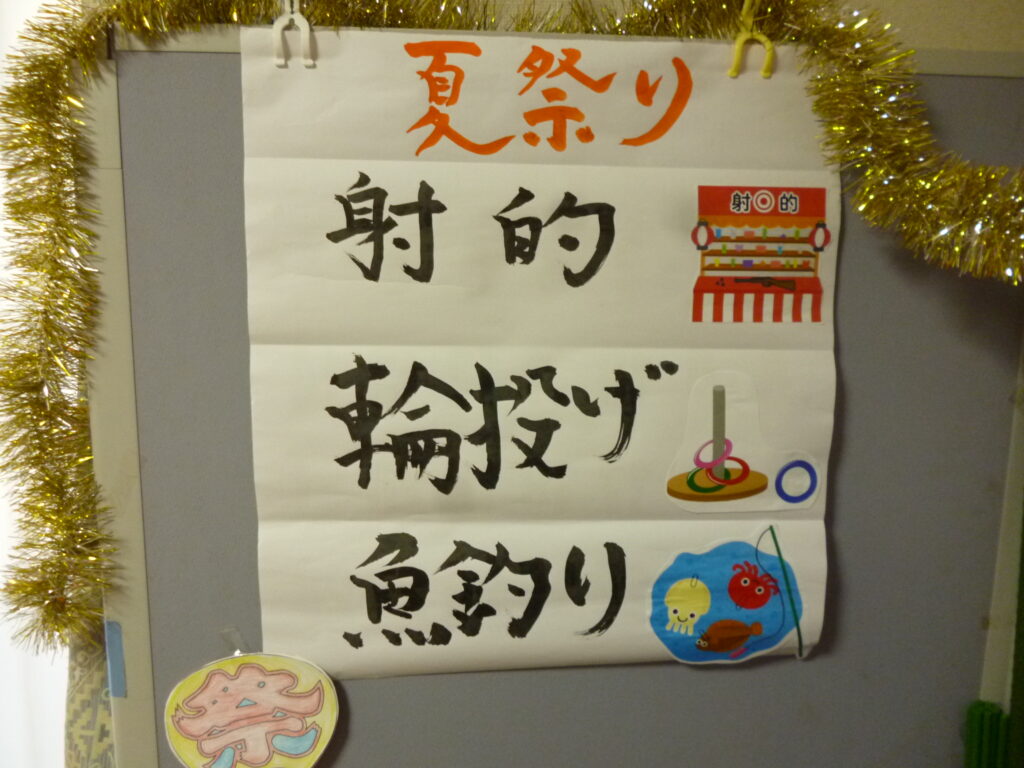 夏祭り
射的
射的
輪投げ
魚釣り
祭